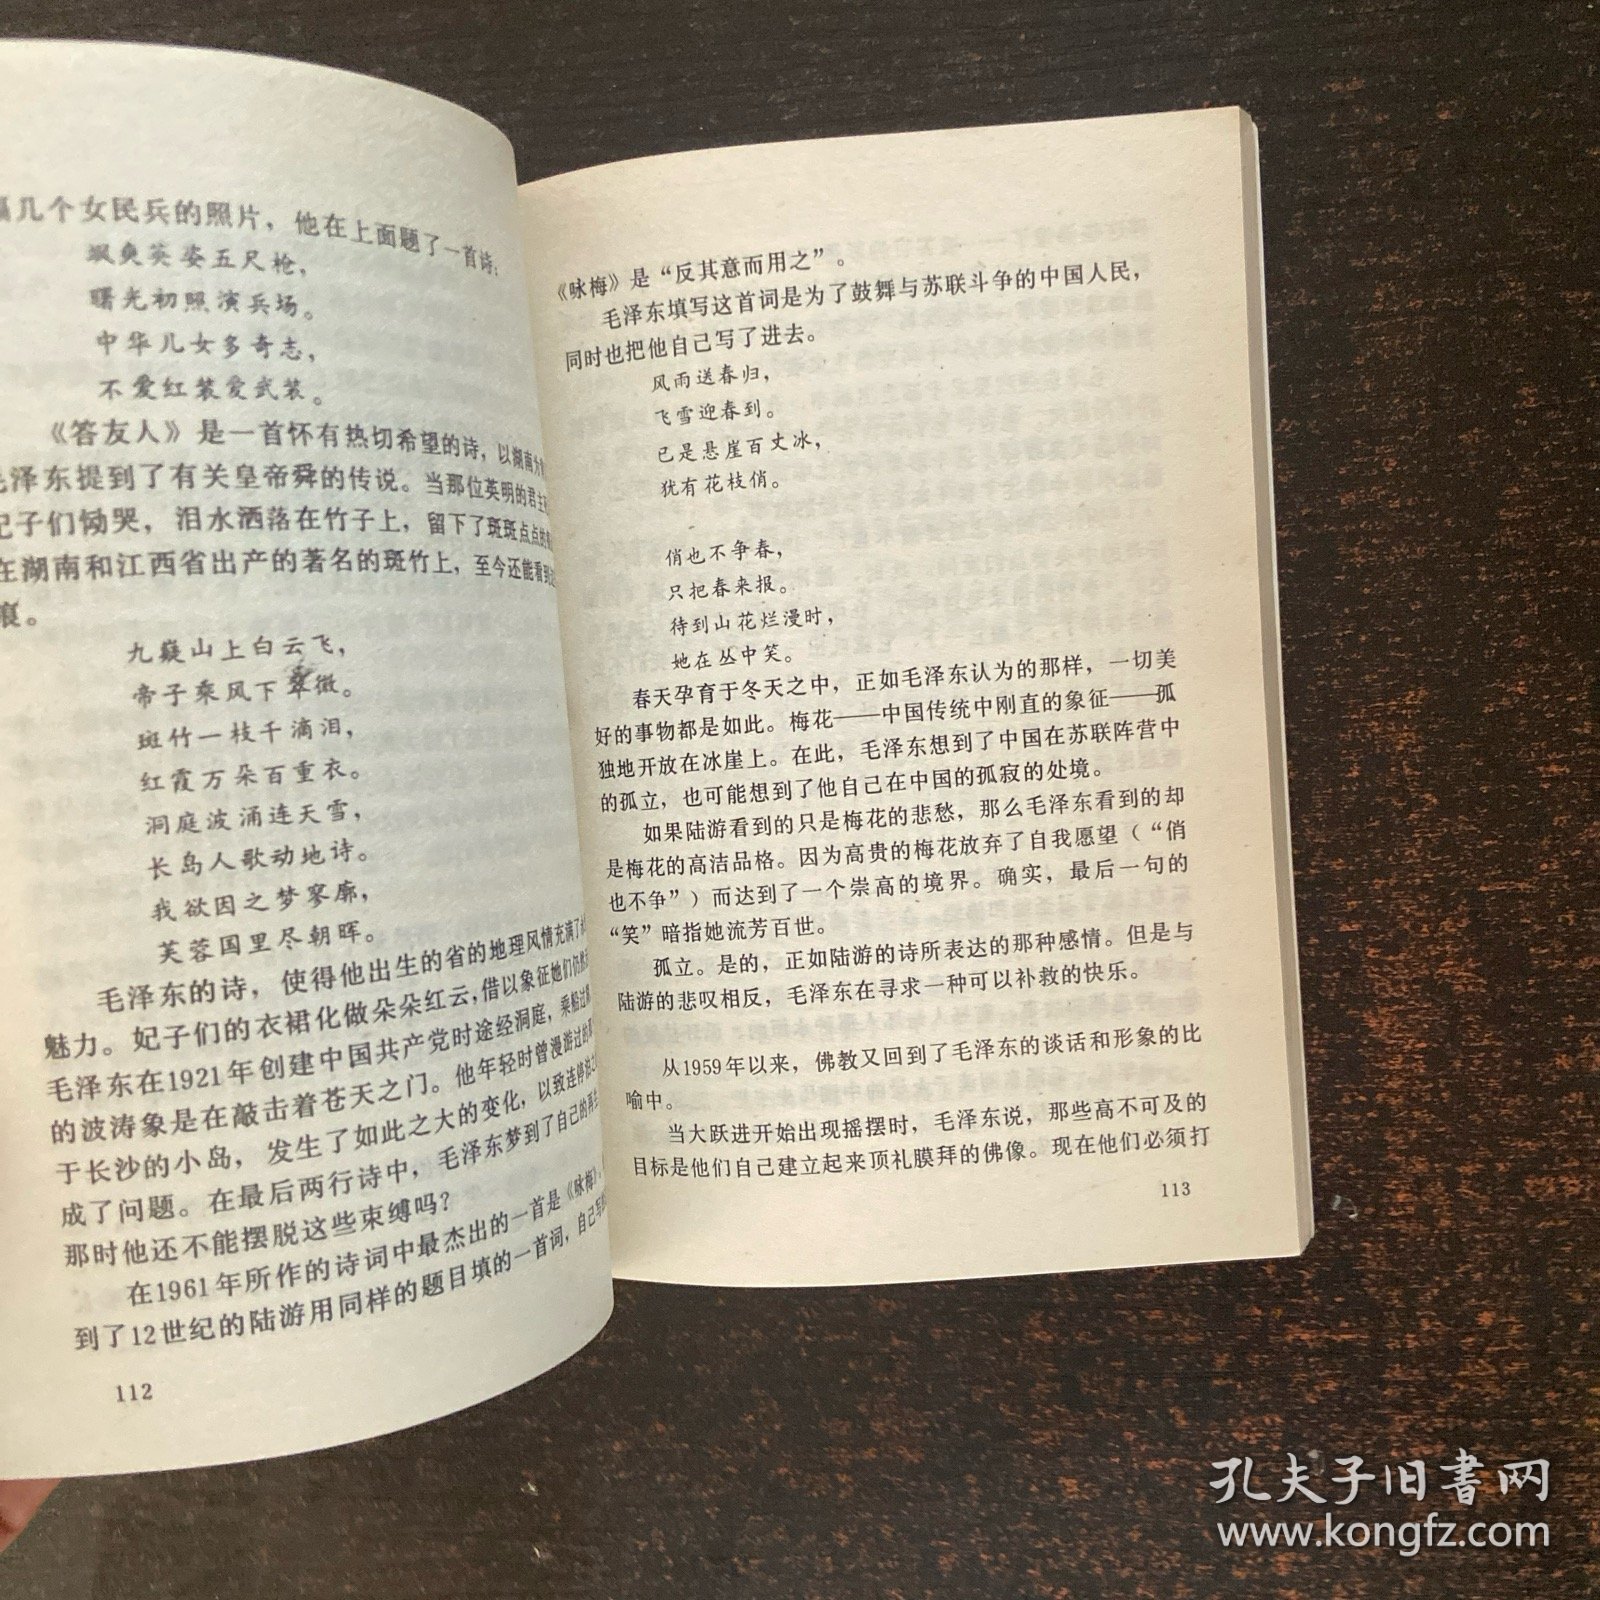 幅几个女民兵的照片，他在上面题了一首诗：
飒爽英姿五尺枪，
曙光初照演兵场。
中华儿女多奇志，
不爱红装爱武装。
《答友人》是一首怀有热切希望的诗，以湖南为
毛泽东提到了有关皇帝舜的传说。当那位英明的君主
妃子们恸哭，泪水洒落在竹子上，留下了斑斑点点的
在湖南和江西省出产的著名的斑竹上，至今还能看到
痕。
九嶷山上白云飞，
帝子乘风下翠微。
斑竹一枝千滴泪，
红霞万朵百重衣。
洞庭波涌连天雪，
长岛人歌动地诗。
我欲因之梦寥廓，
芙蓉国里尽朝晖。
毛泽东的诗，使得他出生的省的地理风情充满了
魅力。妃子们的衣裙化做朵朵红云，借以象征她们仍然
毛泽东在1921年创建中国共产党时途经洞庭，乘船过
的波涛象是在敲击着苍天之门。他年轻时曾漫游过的
于长沙的小岛，发生了如此之大的变化，以致连停泊
成了问题。在最后两行诗中，毛泽东梦到了自己的再生
那时他还不能摆脱这些束缚吗？
在1961年所作的诗词中最杰出的一首是《咏梅》，
到了12世纪的陆游用同样的题目填的一首词，自己写
112
《咏梅》是“反其意而用之”。
毛泽东填写这首词是为了鼓舞与苏联斗争的中国人民，
同时也把他自己写了进去。
风雨送春归，
飞雪迎春到。
已是悬崖百丈冰，
犹有花枝俏。
俏也不争春，
只把春来报。
待到山花烂漫时，
她在丛中笑。
春天孕育于冬天之中，正如毛泽东认为的那样，一切美
好的事物都是如此。梅花——中国传统中刚直的象征——孤
独地开放在冰崖上。在此，毛泽东想到了中国在苏联阵营中
的孤立，也可能想到了他自己在中国的孤寂的处境。
如果陆游看到的只是梅花的悲愁，那么毛泽东看到的却
是梅花的高洁品格。因为高贵的梅花放弃了自我愿望（“俏
也不争”）而达到了一个崇高的境界。确实，最后一句的
“笑”暗指她流芳百世。
孤立。是的，正如陆游的诗所表达的那种感情。但是与
陆游的悲叹相反，毛泽东在寻求一种可以补救的快乐。
从1959年以来，佛教又回到了毛泽东的谈话和形象的比
喻中。
当大跃进开始出现摇摆时，毛泽东说，那些高不可及的
目标是他们自己建立起来顶礼膜拜的佛像。现在他们必须打
113
孔夫子旧书网
www.kongfz.com